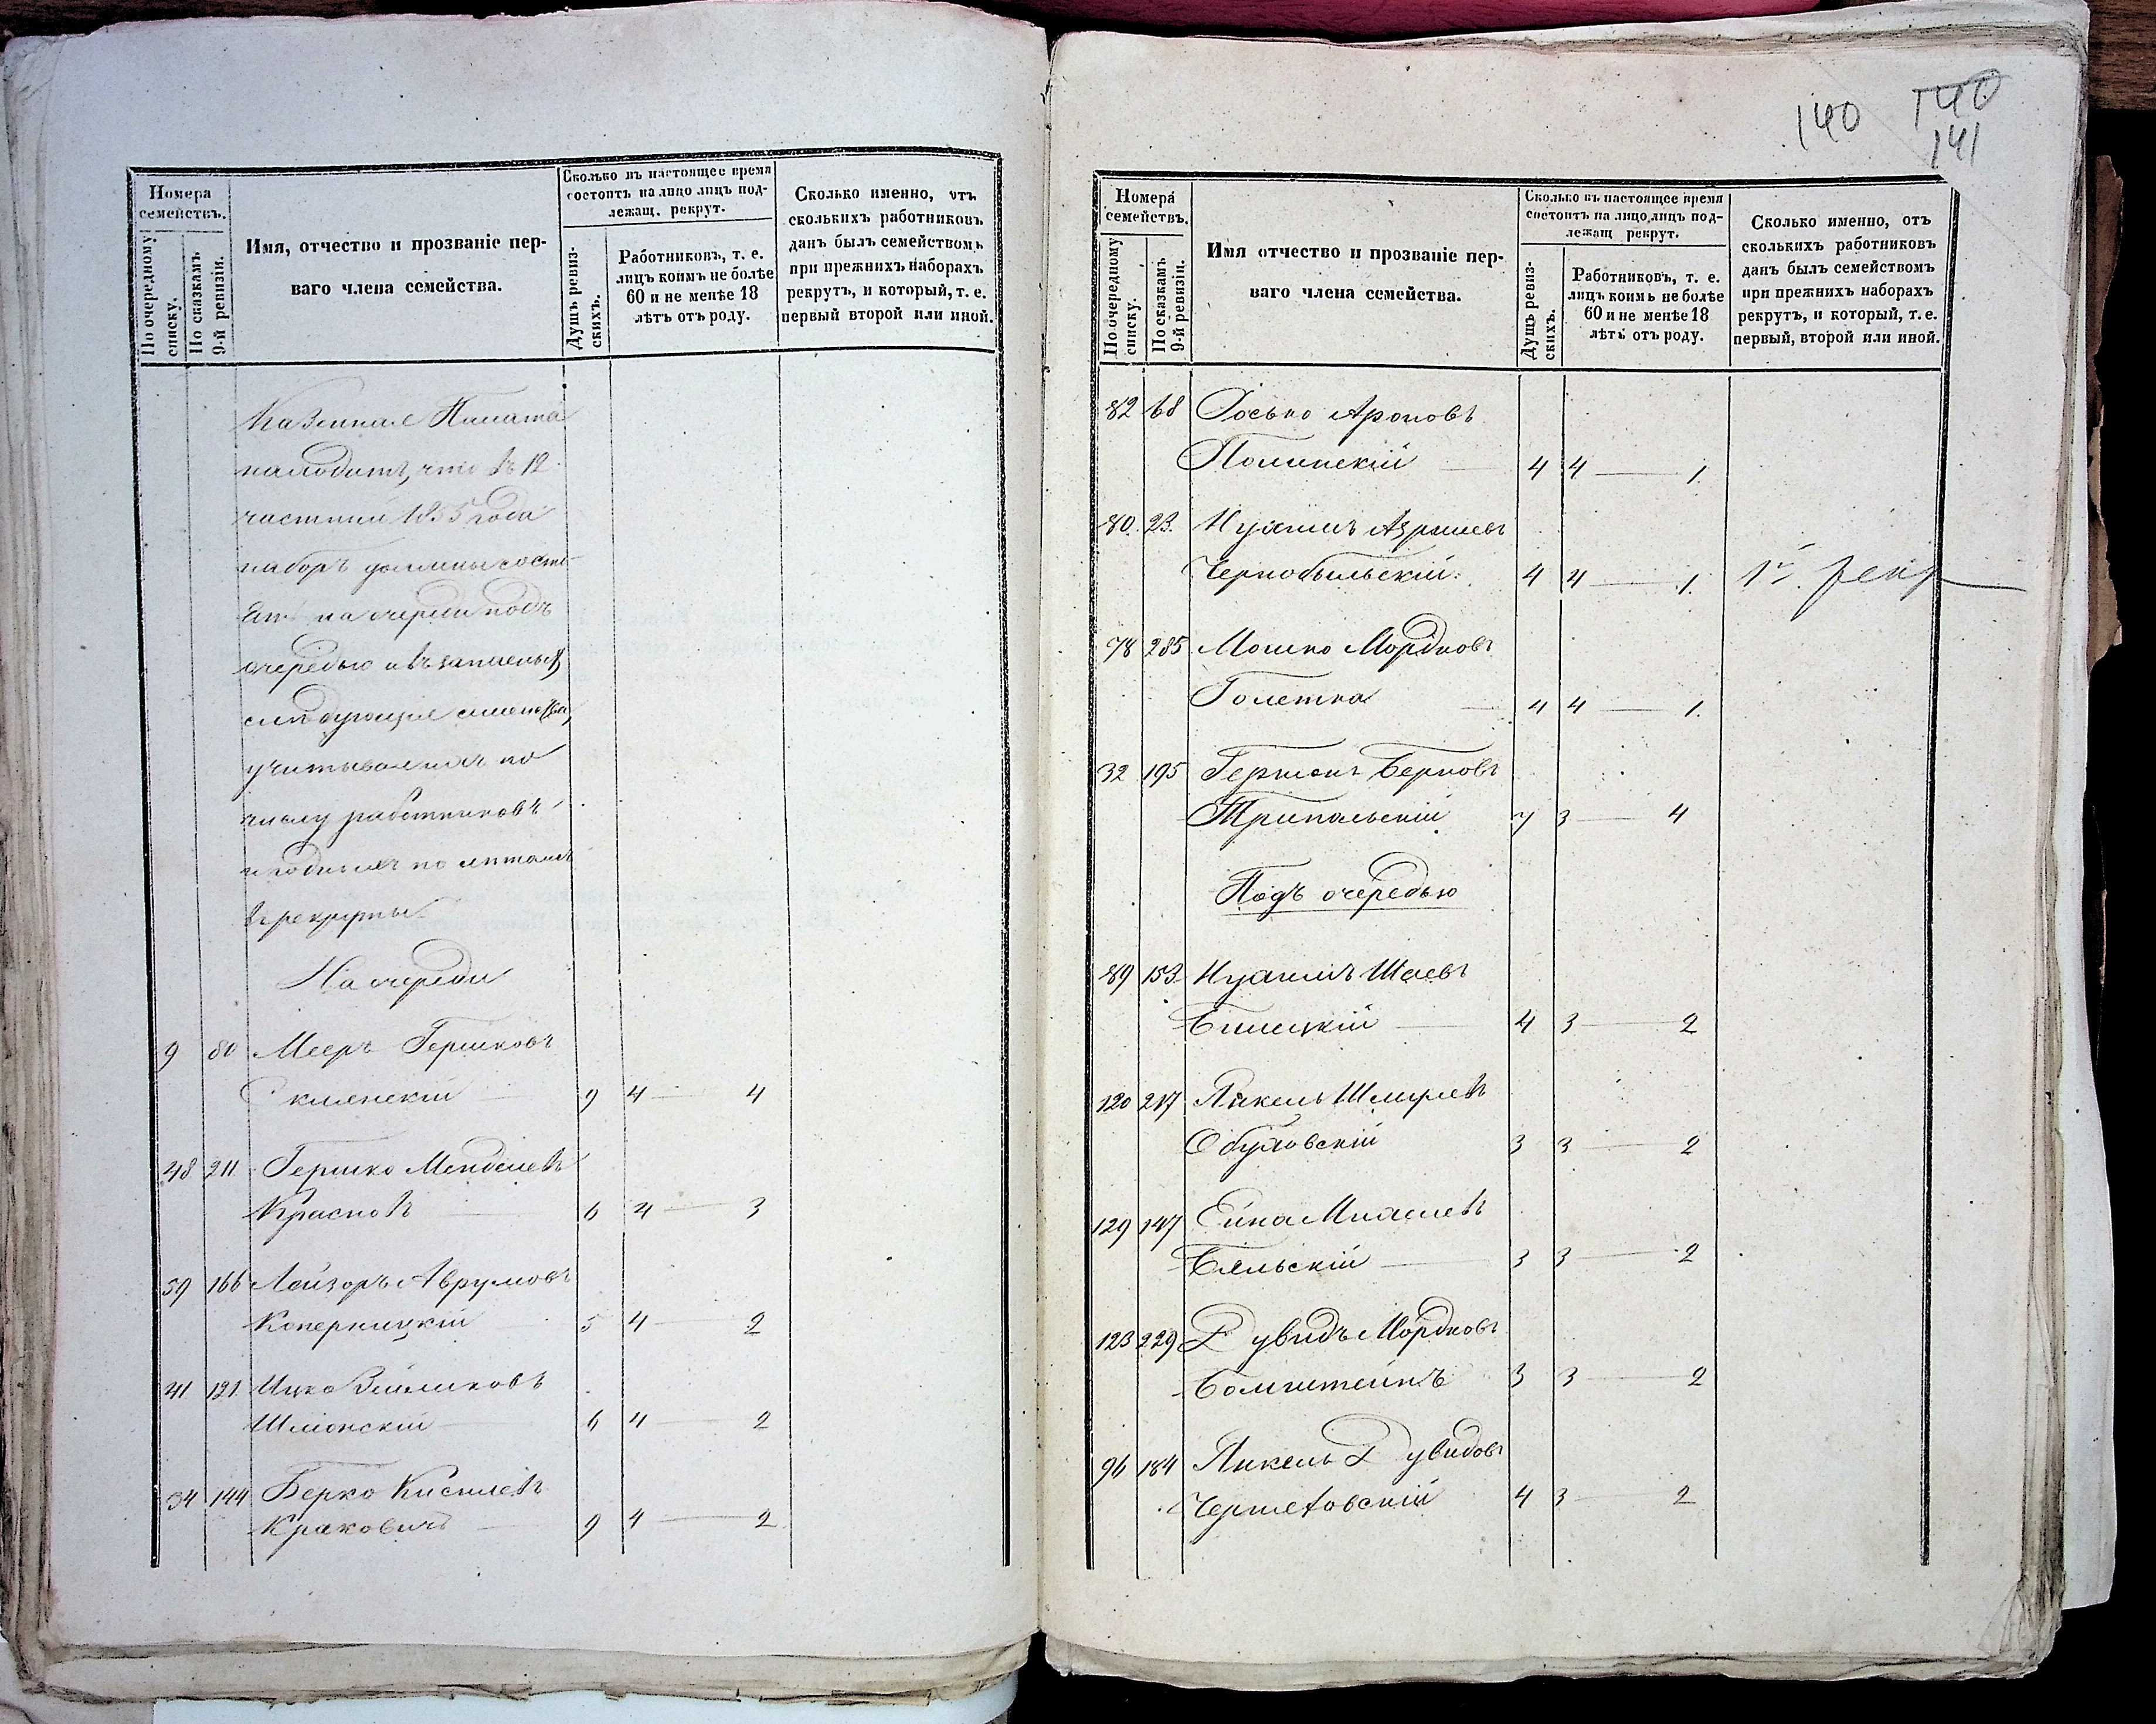 Номера семействъ.
По очередному списку.
По сказкамъ 9-й ревизіи.
Имя, отчество и прозваніе пер-
ваго члена семейства.
Сколько въ настоящее время
состоитъ на лицо лицъ под-
лежащ. рекрут.
Душъ ревиз-
скихъ.
Работниковъ, т. е.
лицъ коимъ не болѣе
60 и не менѣе 18
лѣтъ отъ роду.
Сколько именно, отъ
сколькихъ работниковъ
данъ былъ семействомъ
при прежнихъ наборахъ
рекрутъ, и который, т. е.
первый второй или иной.
Казенная Палата
находитъ, что въ 12
частный 1855 года
наборъ должны состо-
ять на очереди подъ
очередью и въ запасныхъ
слѣдующія
по
числу работниковъ
по лѣтамъ
въ рекруты
На очереди
9 80 Мееръ Гершковъ
9 4 — 4
48 211 Гершко Менделевъ
Красновъ 6 4 — 3
59 166 Лейзоръ Аврумовъ
Коперницкій 5 4 — 2
41 121 Ицко Зейликовъ
Шліонскій 6 4 — 2
34 144 Берко Кисилевъ
Краковичъ 9 4 — 2
140 140
141
Номера семействъ.
По очередному списку.
По сказкамъ 9-й ревизіи.
Имя отчество и прозваніе пер-
ваго члена семейства.
Сколько въ настоящее время
состоитъ на лицо лицъ под-
лежащ рекрут.
Душъ ревиз-
скихъ.
Работниковъ, т. е.
лицъ коимъ не болѣе
60 и не менѣе 18
лѣтъ отъ роду.
Сколько именно, отъ
сколькихъ работниковъ
данъ былъ семействомъ
при прежнихъ наборахъ
рекрутъ, и который, т. е.
первый, второй или иной.
82 68 Іосько Ароновъ
4 4 — 1.
80. 23. Нухимъ
Чернобыльскій. 4 4 — 1. рекр
78 285 Мошко Мордковъ
4 4 — 1.
32 195 Берковъ
Трипольскій 7 3 — 4
Подъ очередью
89 153 Нухимъ Шаевъ
Билецкій 4 3 — 2
120 217 Янкель
Обуховскій 3 3 — 2
129 147
Бяльскій 3 3 — 2
123 229 Дувидъ Мордковъ
3 3 — 2
96 184 Янкель Дувидовъ
4 3 — 2